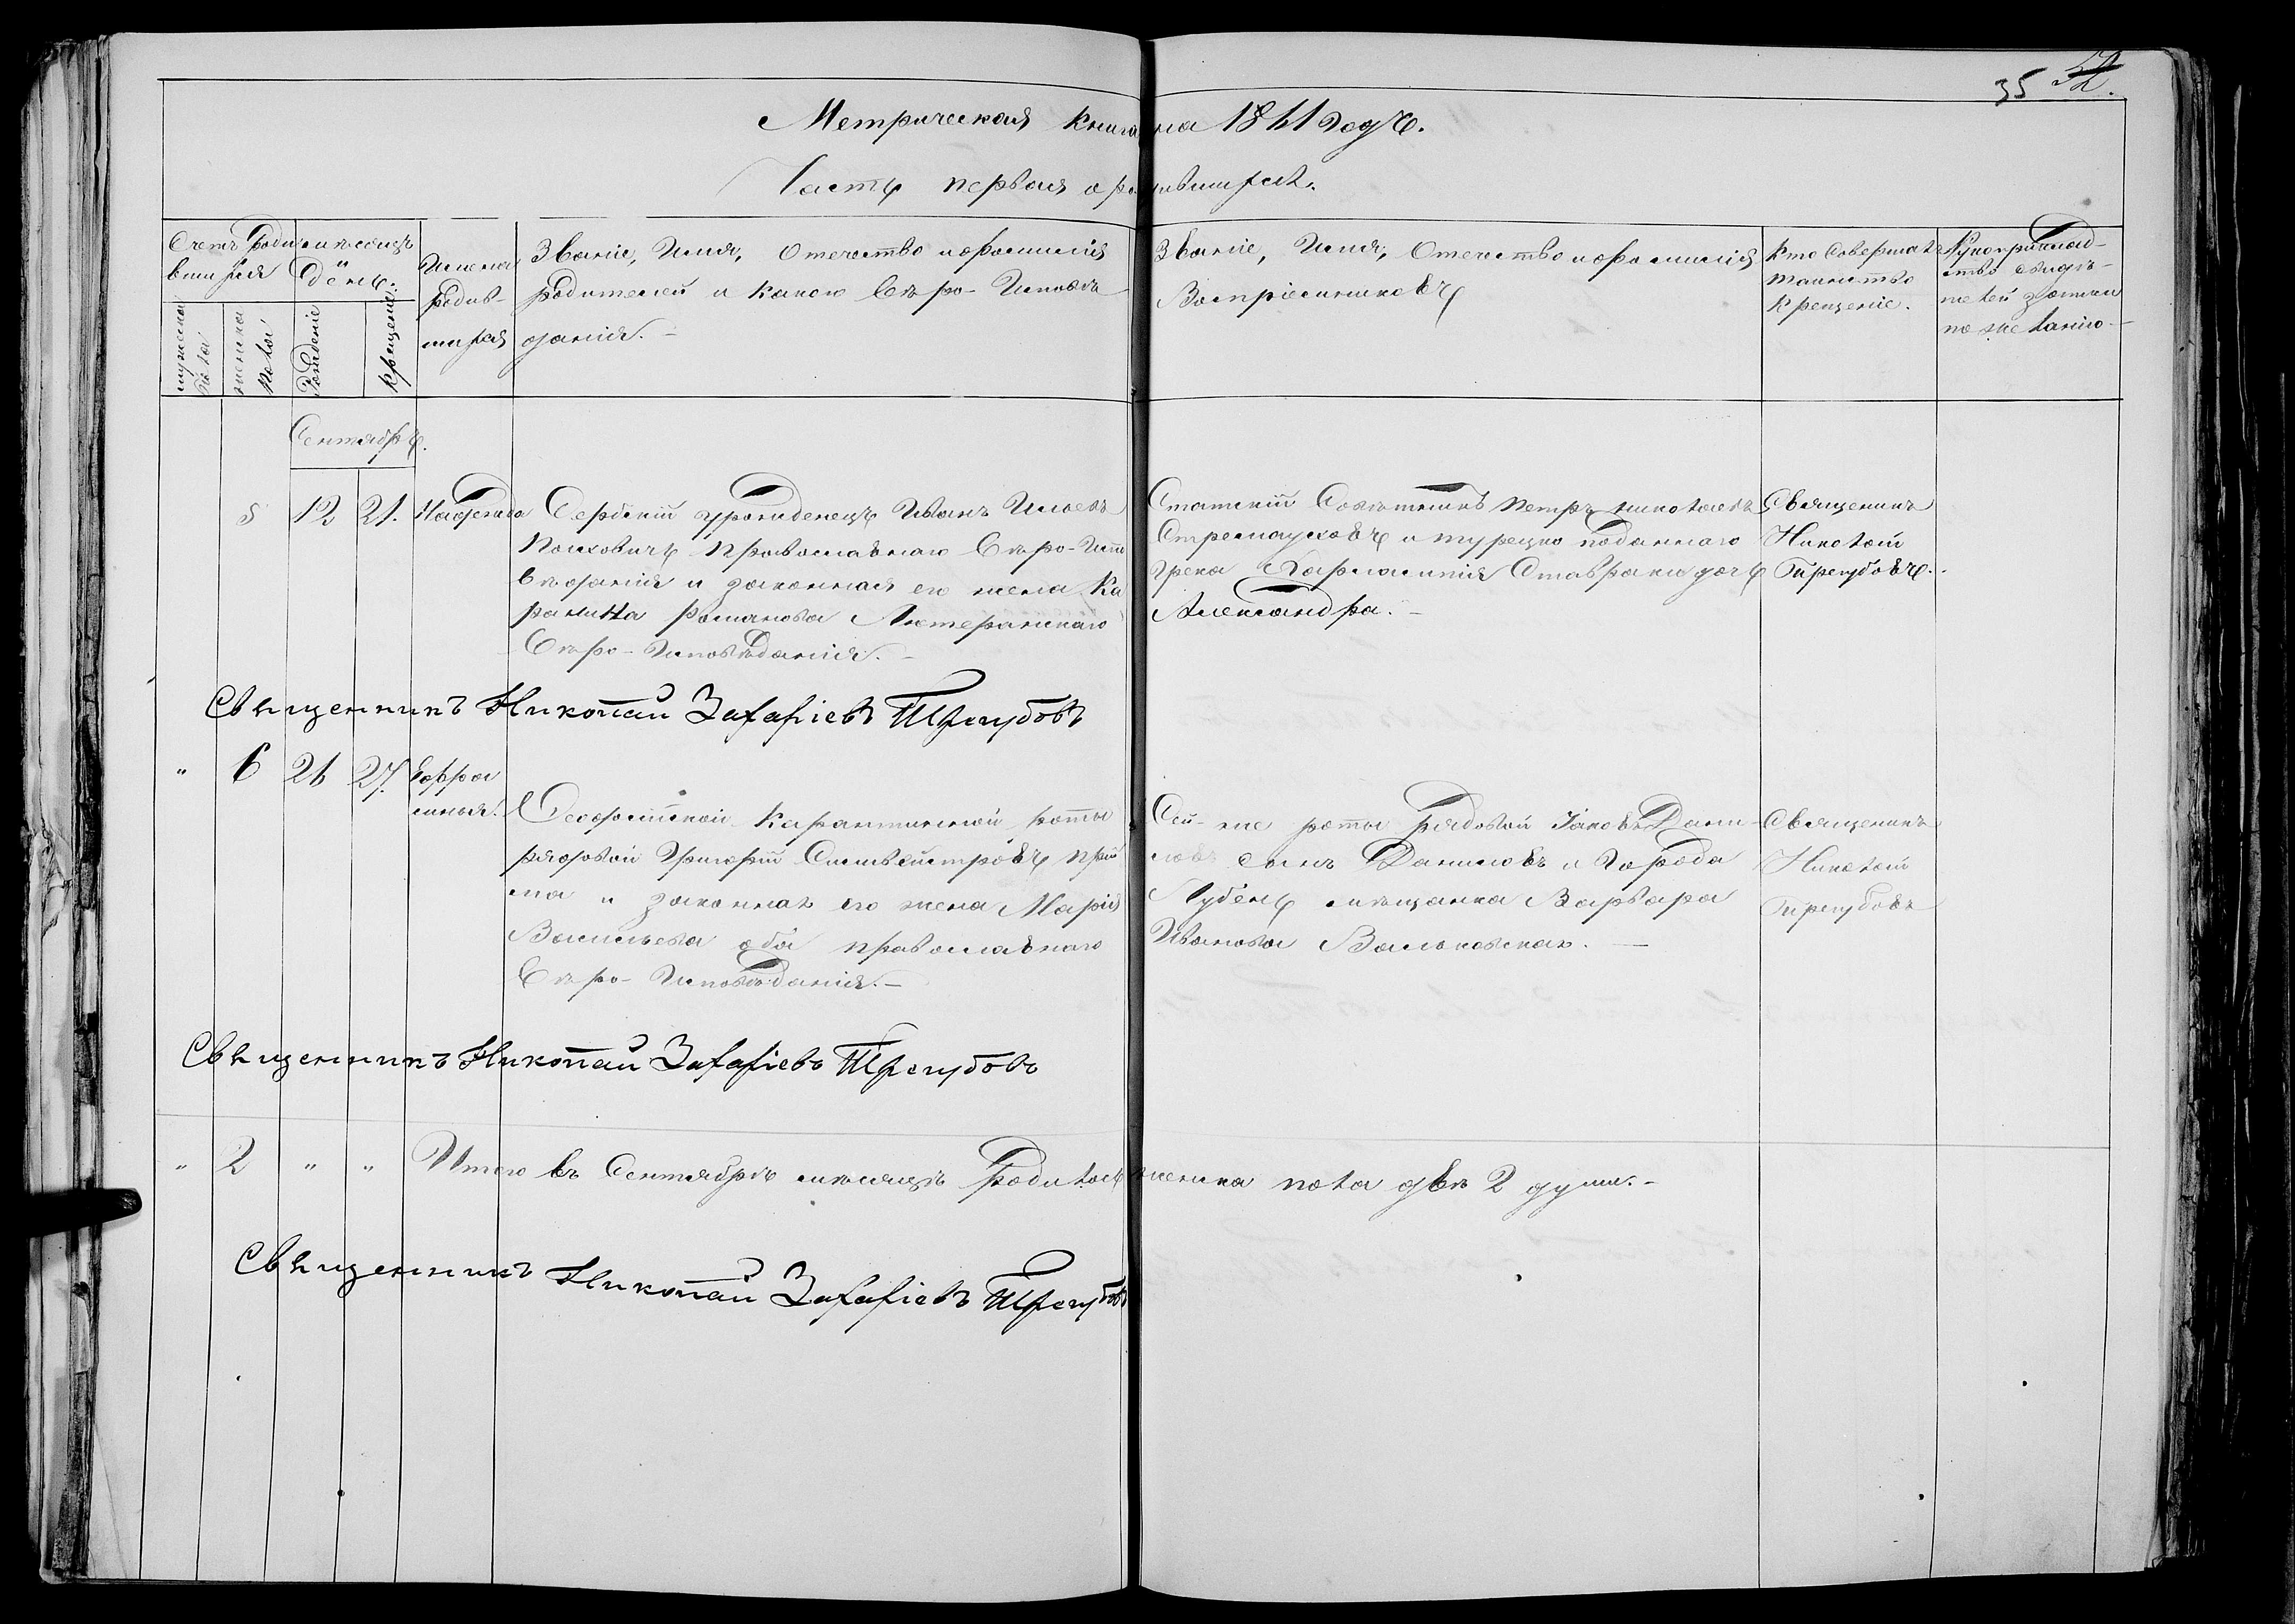 35 52.
Метрическая книга на 1841 годъ.
Часть первая о родившихся.
Счетъ роди-
вшихся
мужеска
пола
женска
пола
мѣсяцъ
день.
Рожденіе
Крещеніе.
Имена
родив-
шихся
Званіе, Имя, Отечество и фамилія
родителей и какого Вѣро-Исповѣ-
данія.-
Званіе, Имя, Отечество и фамилія
Воспріемниковъ
Кто совершалъ
таинство
крещеніе.
Рукоприклад-
ство свидѣ-
телей записи
по желанію-
Сентябрь.
5 12 21. Надежда
Сербскій урожденецъ Иванъ Ильевъ
Православнаго Вѣро-Испо
вѣданія и законная его жена Ка
ролина Романова Лютеранскаго
Вѣро-Исповѣданія.-
Статскій Совѣтникъ Петръ Николаевъ
и турецко подданнаго
грека Ставраки дочь
Александра.-
Священникъ
Николай
Трегубовъ.
Священникъ Николай Захаріевъ Трегубовъ
" 6 26 27. Евфро
синья.
Ѳеодосійской Карантинной роты
рядовой Григорій Сильвейстровъ При
ма и законная его жена Марія
Васильева оба православнаго
Вѣро-Исповѣданія.-
Сей-же роты рядовой Іаковъ Дани-
ловъ сынъ Даниловъ и города
Лубенъ мѣщанка Варвара
Иванова Вальковская.-
Священникъ
Николай
Трегубовъ
Священникъ Николай Захаріевъ Трегубовъ
" 2 " " Итого въ Сентябрѣ мѣсяцѣ родилось женска пола двѣ 2 души.-
Священникъ Николай Захаріевъ Трегубовъ